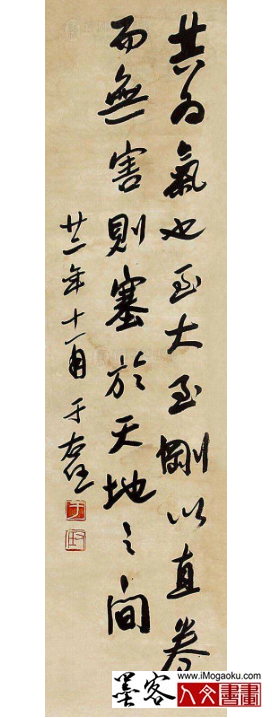 其為氣也至大至剛以直養
而無害則塞於天地之間
廿二年十一月 于右任
墨客
www.iMogaoku.com
人文書畫